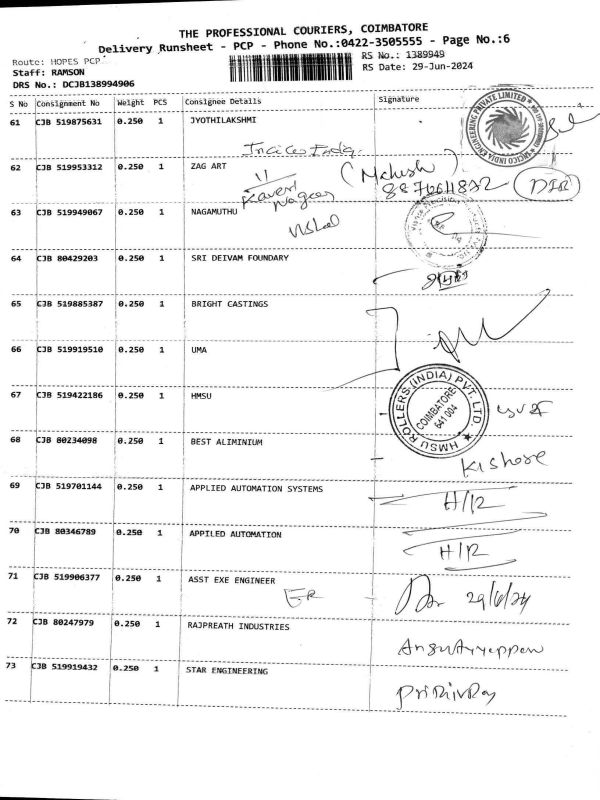 THE PROFESSIONAL COURIERS, COIMBATORE
Delivery Runsheet - PCP - Phone No.:0422-3505555 - Page No.:6
Route: HOPES PCP
RS No.: 1389949
Staff: RAMSON
RS Date: 29-Jun-2024
DRS No.: DCJB138994906
S No Consignment No Weight PCS Consignee Details Signature
61 CJB 519875631 0.250 1 JYOTHILAKSHMI
62 CJB 519953312 0.250 1 ZAG ART
(Mahesh)
DIR
63 CJB 519949067 0.250 1 NAGAMUTHU
64 CJB 80429203 0.250 1 SRI DEIVAM FOUNDARY
65 CJB 519885387 0.250 1 BRIGHT CASTINGS
66 CJB 519919510 0.250 1 UMA
67 CJB 519422186 0.250 1 HMSU
HMSU ROLLERS (INDIA) PVT. LTD.
COIMBATORE
641 004
68 CJB 80234098 0.250 1 BEST ALIMINIUM
Kishore
69 CJB 519701144 0.250 1 APPLIED AUTOMATION SYSTEMS
H/R
70 CJB 80346789 0.250 1 APPILED AUTOMATION
H/R
71 CJB 519906377 0.250 1 ASST EXE ENGINEER
29/6/24
72 CJB 80247979 0.250 1 RAJPREATH INDUSTRIES
73 CJB 519919432 0.250 1 STAR ENGINEERING